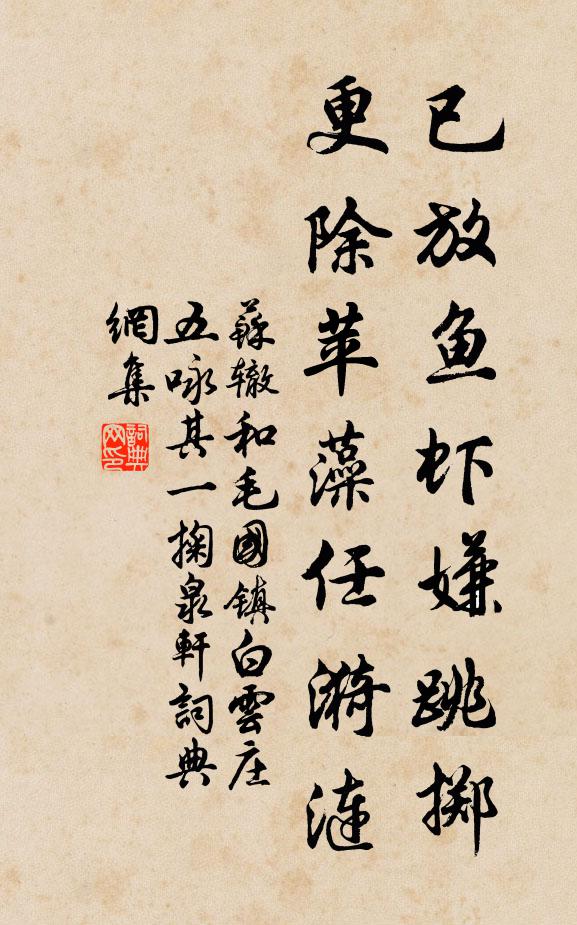 已放鱼虾嫌跳掷
更除苹藻任漪涟
蘇辙和毛國镇白雲庄
五咏其一掬泉軒詞典
網集
詞典
网印